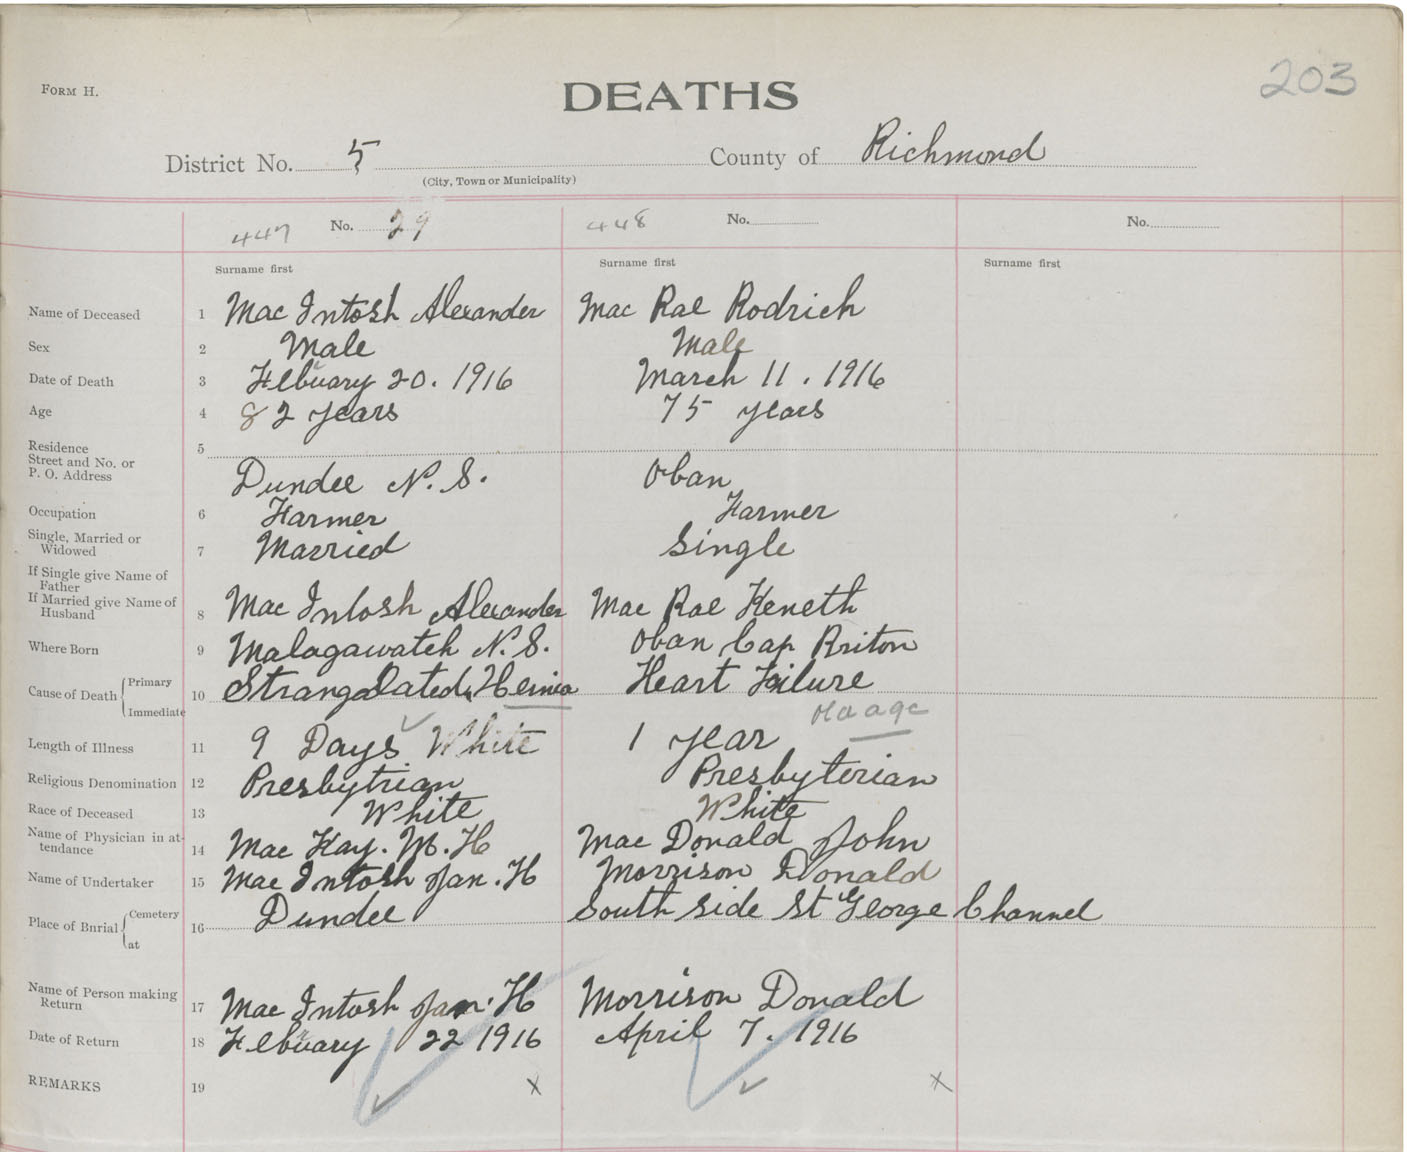 203
FORM H.
DEATHS
District No. 5 County of Richmond
(City, Town or Municipality)
447 No. 29 448 No. No.
Surname first Surname first Surname first
Name of Deceased 1 Mac Intosh Alexander Mac Rae Rodrich
Sex 2 Male Male
Date of Death 3 Febuary 20. 1916 March 11. 1916
Age 4 82 years 75 years
Residence 5
Street and No. or
P. O. Address Dundee N. S. Oban
Occupation 6 Farmer Farmer
Single, Married or
Widowed 7 Married Single
If Single give Name of
Father
If Married give Name of
Husband 8 Mac Intosh Alexander Mac Rae Keneth
Where Born 9 Malagawatch N. S. Oban Cap Briton
Cause of Death Primary
Immediate 10 Strangalated Hernia Heart Failure
old age
Length of Illness 11 9 Days White 1 year
Religious Denomination 12 Presbytrian Presbyterian
Race of Deceased 13 White White
Name of Physician in at-
tendance 14 Mac Kay. M. H Mac Donald John
Name of Undertaker 15 Mac Intosh Jan. H Morrison Donald
Place of Burial Cemetery
at 16 Dundee South side St George Channel
Name of Person making
Return 17 Mac Intosh Jan. H Morrison Donald
Date of Return 18 Febuary 22 1916 April 7. 1916
REMARKS 19 x x